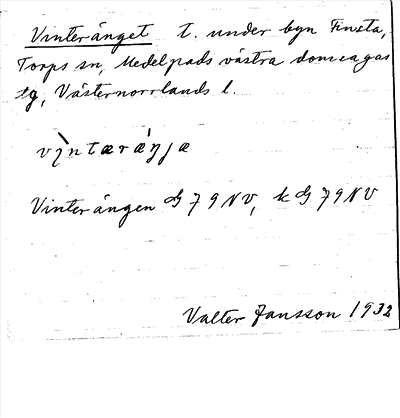 Vinteränget t. under byn Finsta,
Torps sn, Medelpads västra domsagas
tg, Västernorrlands l.
vìntærǽŋjæ
Vinterängen G 79 NV, k G 79 NV
Valter Jansson 1932